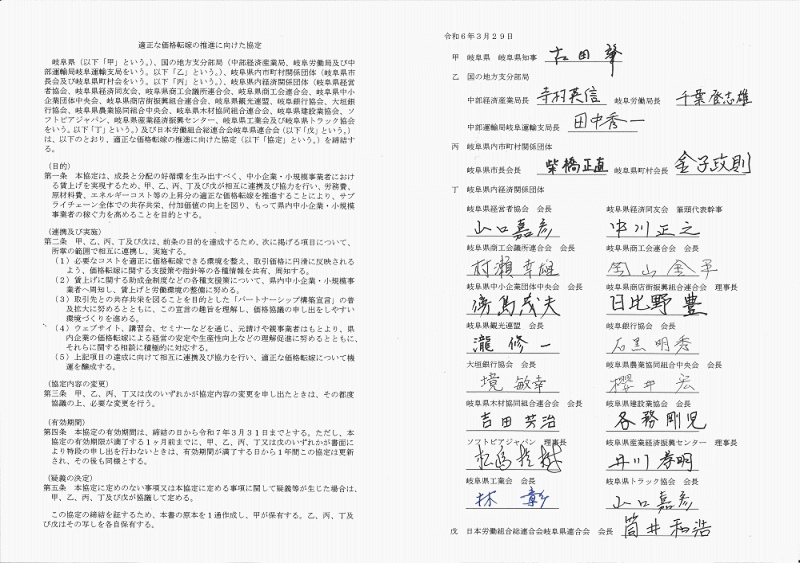 適正な価格転嫁の推進に向けた協定
岐阜県（以下「甲」という。）、国の地方支分部局（中部経済産業局、岐阜労働局及び中
部運輸局岐阜運輸支局をいう。以下「乙」という。）、岐阜県内市町村関係団体（岐阜県市
長会及び岐阜県町村会をいう。以下「丙」という。）、岐阜県内経済関係団体（岐阜県経営
者協会、岐阜県経済同友会、岐阜県商工会議所連合会、岐阜県商工会連合会、岐阜県中小
企業団体中央会、岐阜県商店街振興組合連合会、岐阜県観光連盟、岐阜県銀行協会、大垣銀
行協会、岐阜県農業協同組合中央会、岐阜県木材協同組合連合会、岐阜県建設業協会、ソ
フトピアジャパン、岐阜県産業経済振興センター、岐阜県工業会及び岐阜県トラック協会
をいう。以下「丁」という。）及び日本労働組合総連合会岐阜県連合会（以下「戊」という。）
は、以下のとおり、適正な価格転嫁の推進に向けた協定（以下「協定」という。）を締結す
る。
（目的）
第一条　本協定は、成長と分配の好循環を生み出すべく、中小企業・小規模事業者におけ
る賃上げを実現するため、甲、乙、丙、丁及び戊が相互に連携及び協力を行い、労務費、
原材料費、エネルギーコスト等の上昇分の適正な価格転嫁を推進することにより、サプ
ライチェーン全体での共存共栄、付加価値の向上を図り、もって県内中小企業・小規模
事業者の稼ぐ力を高めることを目的とする。
（連携及び実施）
第二条　甲、乙、丙、丁及び戊は、前条の目的を達成するため、次に掲げる項目について、
所掌の範囲で相互に連携し、実施する。
（１）必要なコストを適正に価格転嫁できる環境を整え、取引価格に円滑に反映される
よう、価格転嫁に関する支援策や指針等の各種情報を共有、周知する。
（２）賃上げに関する助成金制度などの各種支援策について、県内中小企業・小規模事
業者へ周知し、賃上げと労働環境の整備に努める。
（３）取引先との共存共栄を図ることを目的とした「パートナーシップ構築宣言」の普
及拡大に努めるとともに、この宣言の趣旨を理解し、価格協議の申し出をしやすい
環境づくりに進める。
（４）ウェブサイト、講習会、セミナーなどを通じ、元請けや親事業者はもとより、県
内企業の価格転嫁による経営の安定や生産性向上などの理解促進に努めるとともに、
それらに関する相談に積極的に対応する。
（５）上記項目の達成に向けて相互に連携及び協力を行い、適正な価格転嫁について機
運を醸成する。
（協定内容の変更）
第三条　甲、乙、丙、丁又は戊のいずれかが協定内容の変更を申し出たときは、その都度
協議の上、必要な変更を行う。
（有効期間）
第四条　本協定の有効期間は、締結の日から令和７年３月３１日までとする。ただし、本
協定の有効期限が満了する１ヶ月前までに、甲、乙、丙、丁又は戊のいずれかが書面に
より特段の申し出を行わないときは、有効期間が満了する日から１年間この協定は更新
され、その後も同様とする。
（疑義の決定）
第五条　本協定に定めのない事項又は本協定に定める事項に関して疑義等が生じた場合は、
甲、乙、丙、丁及び戊が協議して定める。
この協定の締結を証するため、本書の原本を１通作成し、甲が保有する。乙、丙、丁及
び戊はその写しを各自保有する。
令和６年３月２９日
甲　岐阜県　岐阜県知事　古田 肇
乙　国の地方支分部局
中部経済産業局長　寺村英信　岐阜労働局長　千葉登志雄
中部運輸局岐阜運輸支局長　田中秀一
丙　岐阜県内市町村関係団体
岐阜県市長会長　柴橋正直　岐阜県町村会長　金子政則
丁　岐阜県内経済関係団体
岐阜県経営者協会　会長　岐阜県経済同友会　筆頭代表幹事
山口嘉彦　中川正之
岐阜県商工会議所連合会　会長　岐阜県商工会連合会　会長
村瀬幸雄
岐阜県中小企業団体中央会　会長　岐阜県商店街振興組合連合会　理事長
傍島茂夫　日比野豊
岐阜県観光連盟　会長　岐阜県銀行協会　会長
瀧 修一　石黒明秀
大垣銀行協会　会長　岐阜県農業協同組合中央会　会長
境 敏幸　櫻井宏
岐阜県木材協同組合連合会　会長　岐阜県建設業協会　会長
吉田芳治　各務剛児
ソフトピアジャパン　理事長　岐阜県産業経済振興センター　理事長
岐阜県工業会　会長　岐阜県トラック協会　会長
山口嘉彦
戊　日本労働組合総連合会岐阜県連合会　会長　筒井和浩